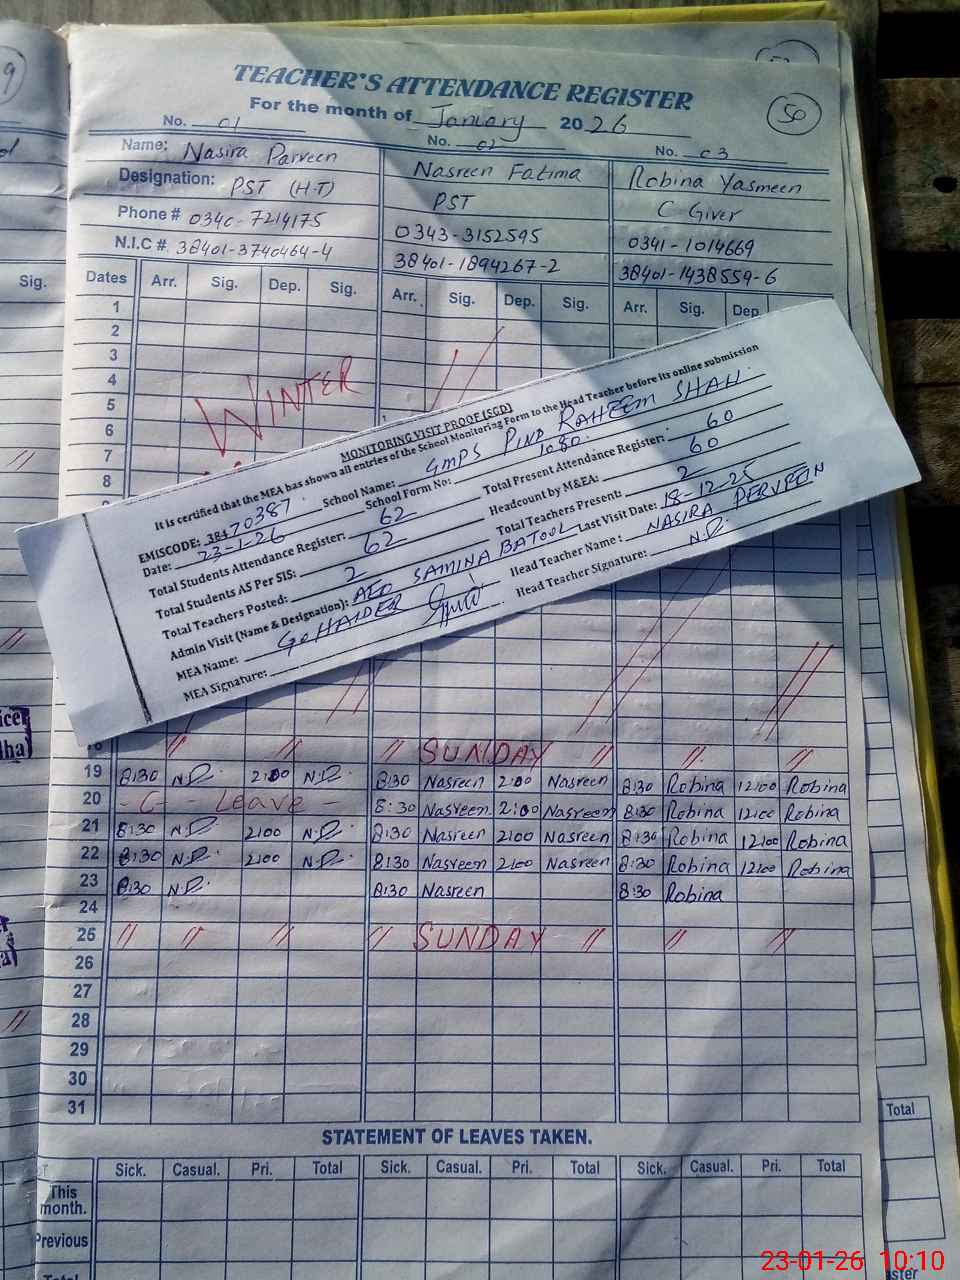 TEACHER'S ATTENDANCE REGISTER
50
For the month of January 2026
No. 01 No. 02 No. 03
Name: Nasira Parveen Nasreen Fatima Robina Yasmeen
Designation: PST (H.T) PST C Giver
Phone # 0340-7214175 0343-3152595 0341-1014669
N.I.C #. 38401-3740464-4 38401-1894267-2 38401-1438559-6
Dates Arr. Sig. Dep. Sig. Arr. Sig. Dep. Sig. Arr. Sig. Dep.
1
2
3
4
5
6
7
8
WINTER
MONITORING VISIT PROOF (SGD)
It is certified that the MEA has shown all entries of the School Monitoring Form to the Head Teacher before its online submission
EMISCODE: 38470387 School Name: GMPS PIND RAHEEM SHAH
Date: 23-1-26 School Form No: 1080
Total Students Attendance Register: 62 Total Present Attendance Register: 60
Total Students AS Per SIS: 62 Headcount by M&EA: 60
Total Teachers Posted: 2 Total Teachers Present: 2
Admin Visit (Name & Designation): AEO SAMINA BATOOL Last Visit Date: 18-12-25
MEA Name: G. HAIDER Head Teacher Name: NASIRA PERVEEN
MEA Signature: Head Teacher Signature: N.P.
18 // // // SUNDAY // // //
19 8:30 N.P. 2:00 N.P. 8:30 Nasreen 2:00 Nasreen 8:30 Robina 12:00 Robina
20 - C - Leave - 8:30 Nasreen 2:00 Nasreen 8:30 Robina 12:00 Robina
21 8:30 N.P. 2:00 N.P. 8:30 Nasreen 2:00 Nasreen 8:30 Robina 12:00 Robina
22 8:30 N.P. 2:00 N.P. 8:30 Nasreen 2:00 Nasreen 8:30 Robina 12:00 Robina
23 8:30 N.P. 8:30 Nasreen 8:30 Robina
24
25 // // // // SUNDAY // // //
26
27
28
29
30
31
STATEMENT OF LEAVES TAKEN.
Sick. Casual. Pri. Total Sick. Casual. Pri. Total Sick. Casual. Pri. Total
This month.
Previous
Total
Sig.
Total
23-01-26 10:10